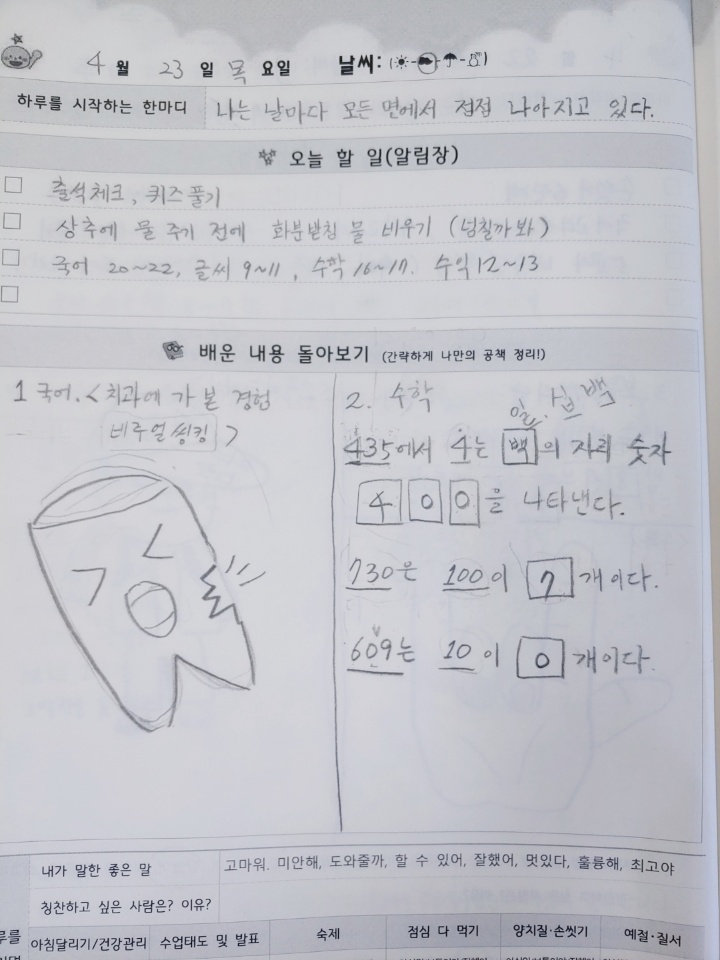 4 월 23 일 목 요일 날씨:
하루를 시작하는 한마디 나는 날마다 모든 면에서 점점 나아지고 있다.
오늘 할 일(알림장)
출석체크, 퀴즈풀기
상추에 물 주기 전에 화분받침 물 비우기 (넘칠까봐)
국어 20~22, 글씨 9~11, 수학 16~17. 수익 12~13
배운 내용 돌아보기 (간략하게 나만의 공책 정리!)
1 국어. <치과에 가 본 경험
비주얼씽킹>
2. 수학
일. 십 백
435에서 4는 백의 자리 숫자
400을 나타낸다.
730은 100이 7개이다.
609는 10이 0개이다.
내가 말한 좋은 말 고마워. 미안해, 도와줄까, 할 수 있어, 잘했어, 멋있다, 훌륭해, 최고야
칭찬하고 싶은 사람은? 이유?
아침달리기/건강관리 수업태도 및 발표 숙제 점심 다 먹기 양치질·손씻기 예절·질서